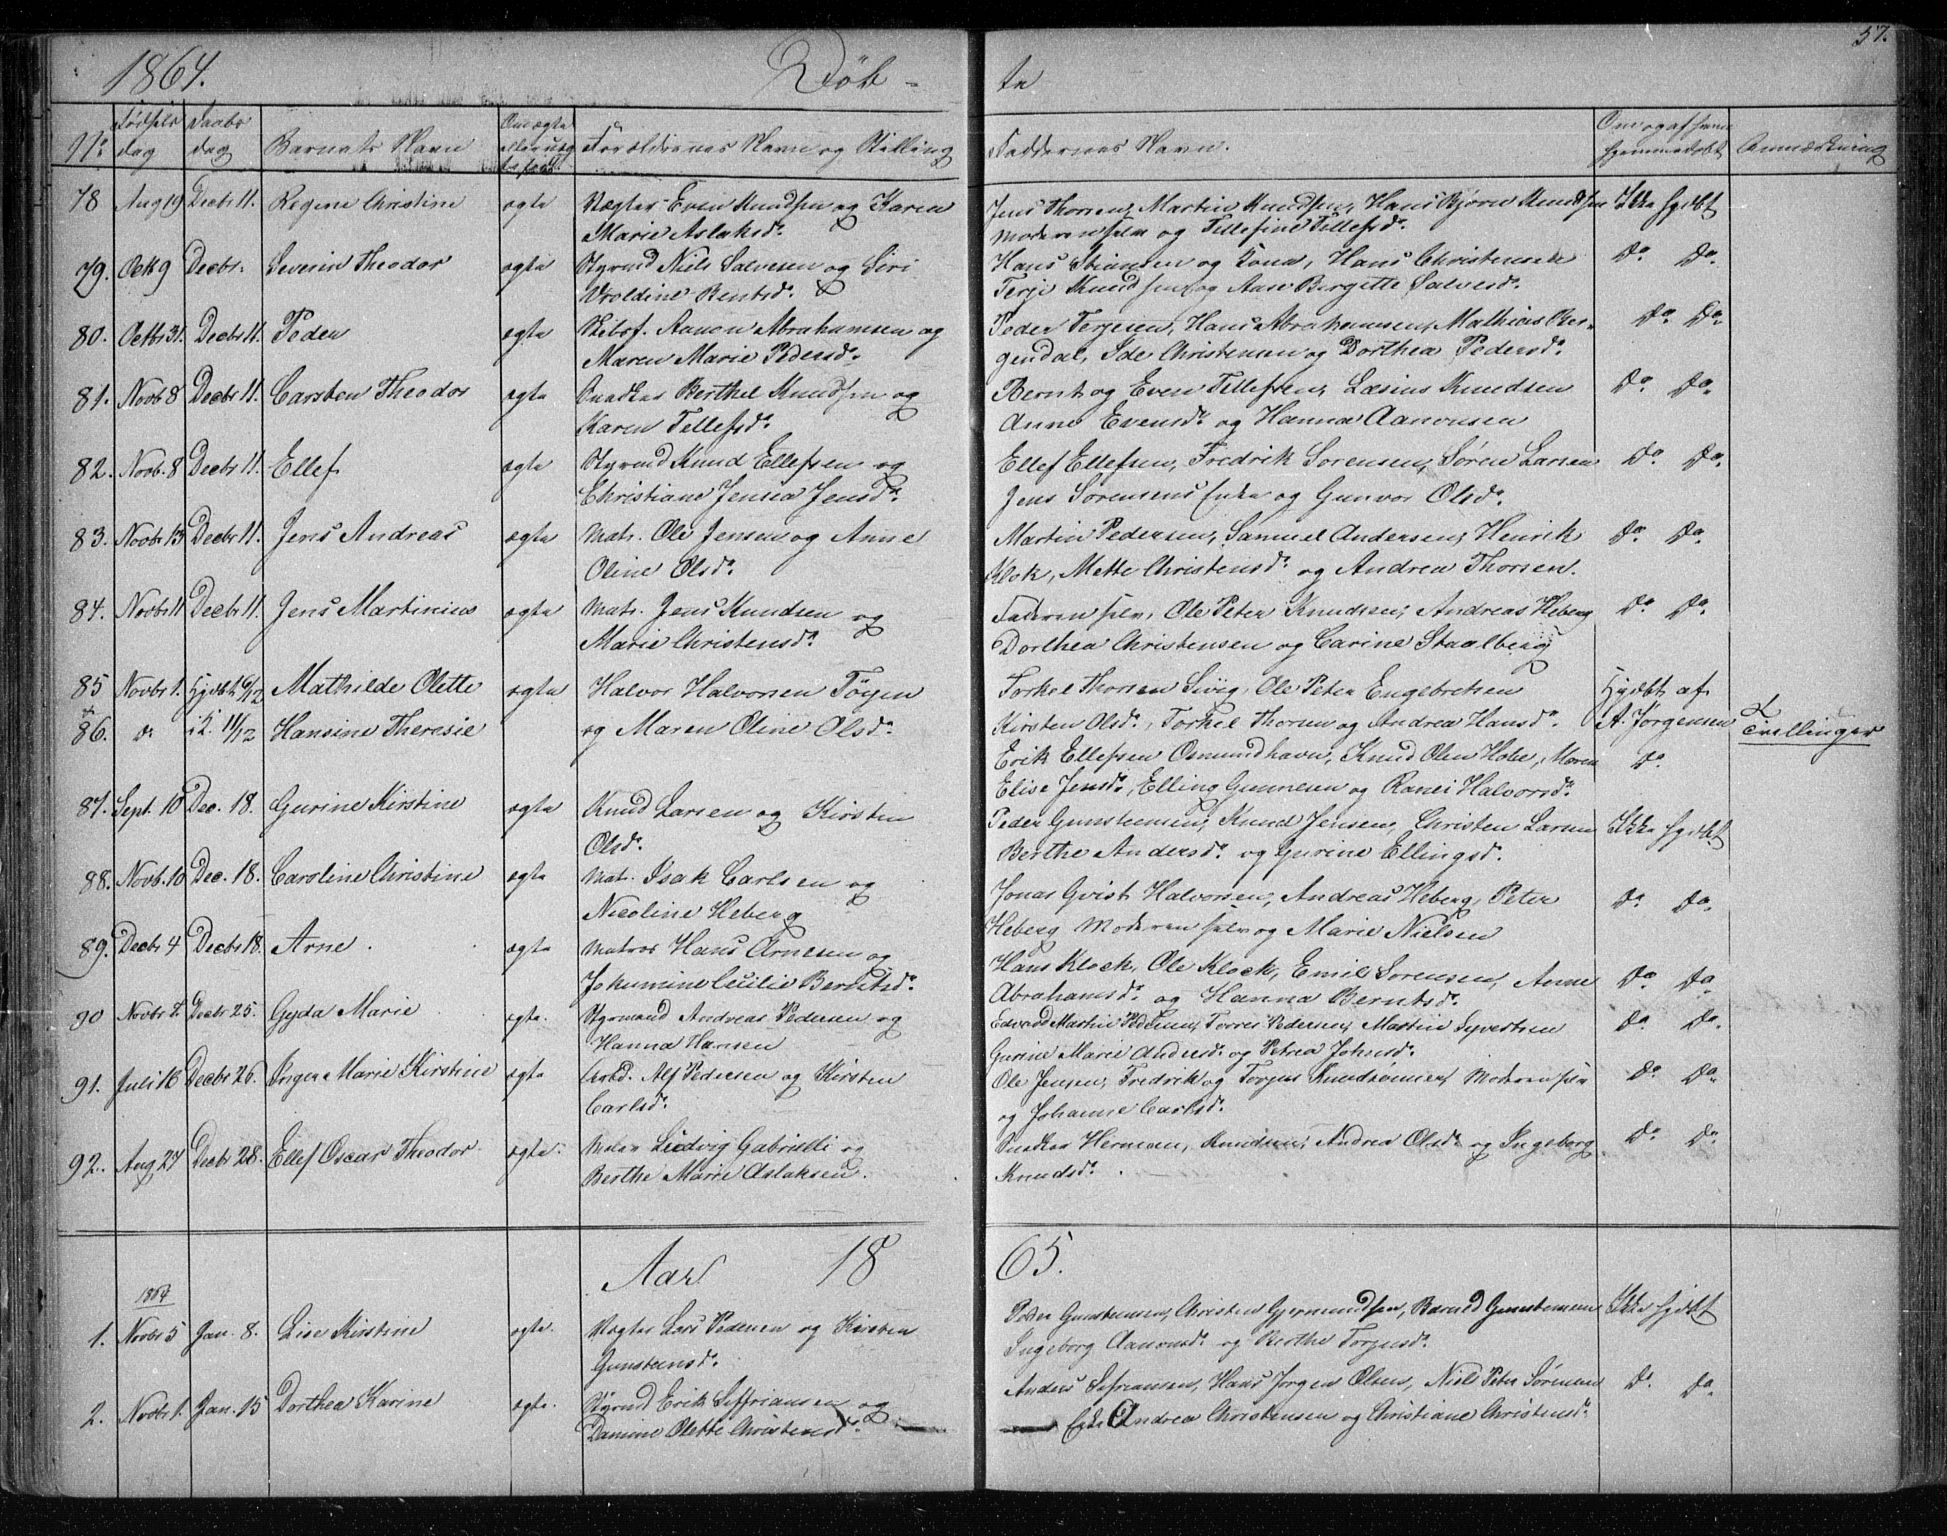 1864. Døb-
te
57.
No
Fødsels dag
Daabs dag
Barnets Navn
Om ægte eller uægte født
Forældrenes Navn og Stilling
Faddernes Navn.
Om og af hvem hjemmedøbt
Anmærkning
78 Aug 19 Decbr 11. Regine Christine ægte Vægter Even Knudsen og Karen
Marie Aslaksdr.
Jens Thorsen, Martin Knudsen, Hans Bjørn Knudsen Ikke hjdbt
Moderen selv og Tellefine Tellefsdr.
79. Octb 9 Decbr. Severin Theodor ægte Styrmd Niels Salvesen og Siri
Uroldine Bentsdr.
Hans Stiansen og Kone, Hans Christensen Do Do.
Terje Knudsen og Aase Birgitte Salvesdr.
80. Octbr 31. Decbr 11. Peder ægte Skibsf. Aanon Abrahamsen og
Maren Marie Pedersdr.
Peder Terjesen, Hans Abrahamsen, Mathias Ber- Do Do.
gendal, Ide Christensen og Dorthea Pedersdr.
81. Novb 8 Decbr 11. Carsten Theodor ægte Snedker Berthel Knudsen og
Karen Tellefsdr.
Bernt og Even Tellefsen, Læsius Knudsen Do Do.
Anne Evensdr og Hanna Aanonsen
82. Novb. 8 Decbr 11. Ellef ægte Styrmd Knud Ellefsen og
Christiane Jensea Jensdr.
Ellef Ellefsen, Fredrik Sorensen, Søren Larsen Do Do.
Jens Sorensens Enke og Gunvor Olsdr.
83. Novbr 13 Decbr 11. Jens Andreas ægte Matr. Ole Jensen og Anne
Oline Olsdr.
Martin Pedersen, Samuel Andersen, Henrik Do Do.
Klok, Mette Christensdr og Andrea Thorsen.
84. Novbr 11 Decbr 11. Jens Martinius ægte Matr. Jens Knudsen og
Marie Christensdr.
Faderen selv, Ole Peter Knudsen, Andreas Heberg Do Do.
Dorthea Christensen og Carine Staalberg
85 Novbr 1. Hjdbt 6/12 Mathilde Olette ægte Halvor Halvorsen Tøgen
Torkel Thorsen Sivig, Ole Peter Engebretsen Hjdbt af
+
86. do i K. 11/12 Hansine Theresie og Maren Oline Olsdr.
Kirsten Olsdr, Torkel Thorsen og Andrea Hansdr. A. Jørgensen Tvillinger
Erik Ellefsen Osmundhavn, Knud Olsen Holte, Maren Do
Elise Jensdr, Elling Gunnesen og Ranei Halvorsdr.
87. Sept. 10 Dec. 18. Gurine Kirstine ægte Knud Larsen og Kirsten
Olsdr.
Peder Gunsteensen, Knud Jensen, Christen Larsen Ikke hjdbt
Berthe Andersdr og Gurine Ellingsdr.
88. Novb. 10 Dec. 18. Caroline Christine ægte Mat. Isak Carlsen og
Nicoline Heberg
Jonas Qvist Halvorsen, Andreas Heberg, Peter Do Do.
Heberg, Moderen selv og Marie Nielsen
89. Decbr 4 Decbr 18. Arne. ægte Matros Hans Arnesen og
Johumine Cecilie Berntsdr.
Hans Klock, Ole Klock, Emil Sorensen, Anne Do Do
Abrahamsdr og Hanna Berntsdr.
90 Novbr 7. Decbr 25. Gyda Marie ægte. Styrmand Andreas Pedersen og
Hanna Hansen
Edvard Martin Pedersen, Torres Pedersen, Martin Syvertsen Do Do.
Gurine Marie Andersdr og Petrea Johnsdr.
91. Juli 16 Decbr 26. Inger Marie Kirstine ægte Arbd. Alf Pedersen og Kirsten
Carlsdr.
Ole Jensen, Fredrik og Torjus Knudsønner, Moderen selv Do Do
og Johanne Carlsdr.
92. Aug 24 Decbr 28. Ellef Oscar Theodor ægte. Maler Ludvig Gabrielli og
Berthe Marie Aslaksen.
Snedker Herman Knudsen, Andrea Olsdr og Ingeborg Do Do
Knudsdr.
Aar 18
65.
1864
1. Novbr 5 Jan. 8. Lise Kirstine ægte. Vægter Lars Pedersen og Kirsten
Gunsteensdr.
Peder Gunsteensen, Christen Gjermundsen, Barved Gunsteensen Ikke hjdbt
Ingeborg Aanonsdr og Berthe Torjusdr.
2. Novbr 1. Jan. 15 Dorthea Karine ægte. Styrmd Erik Seffriansen og
Damine Olette Christensdr.
Anders Sefriansen, Hans Jørgen Olsen, Niels Peter Sørensen Do Do
Enke Andrea Christensen og Christiane Christensdr.